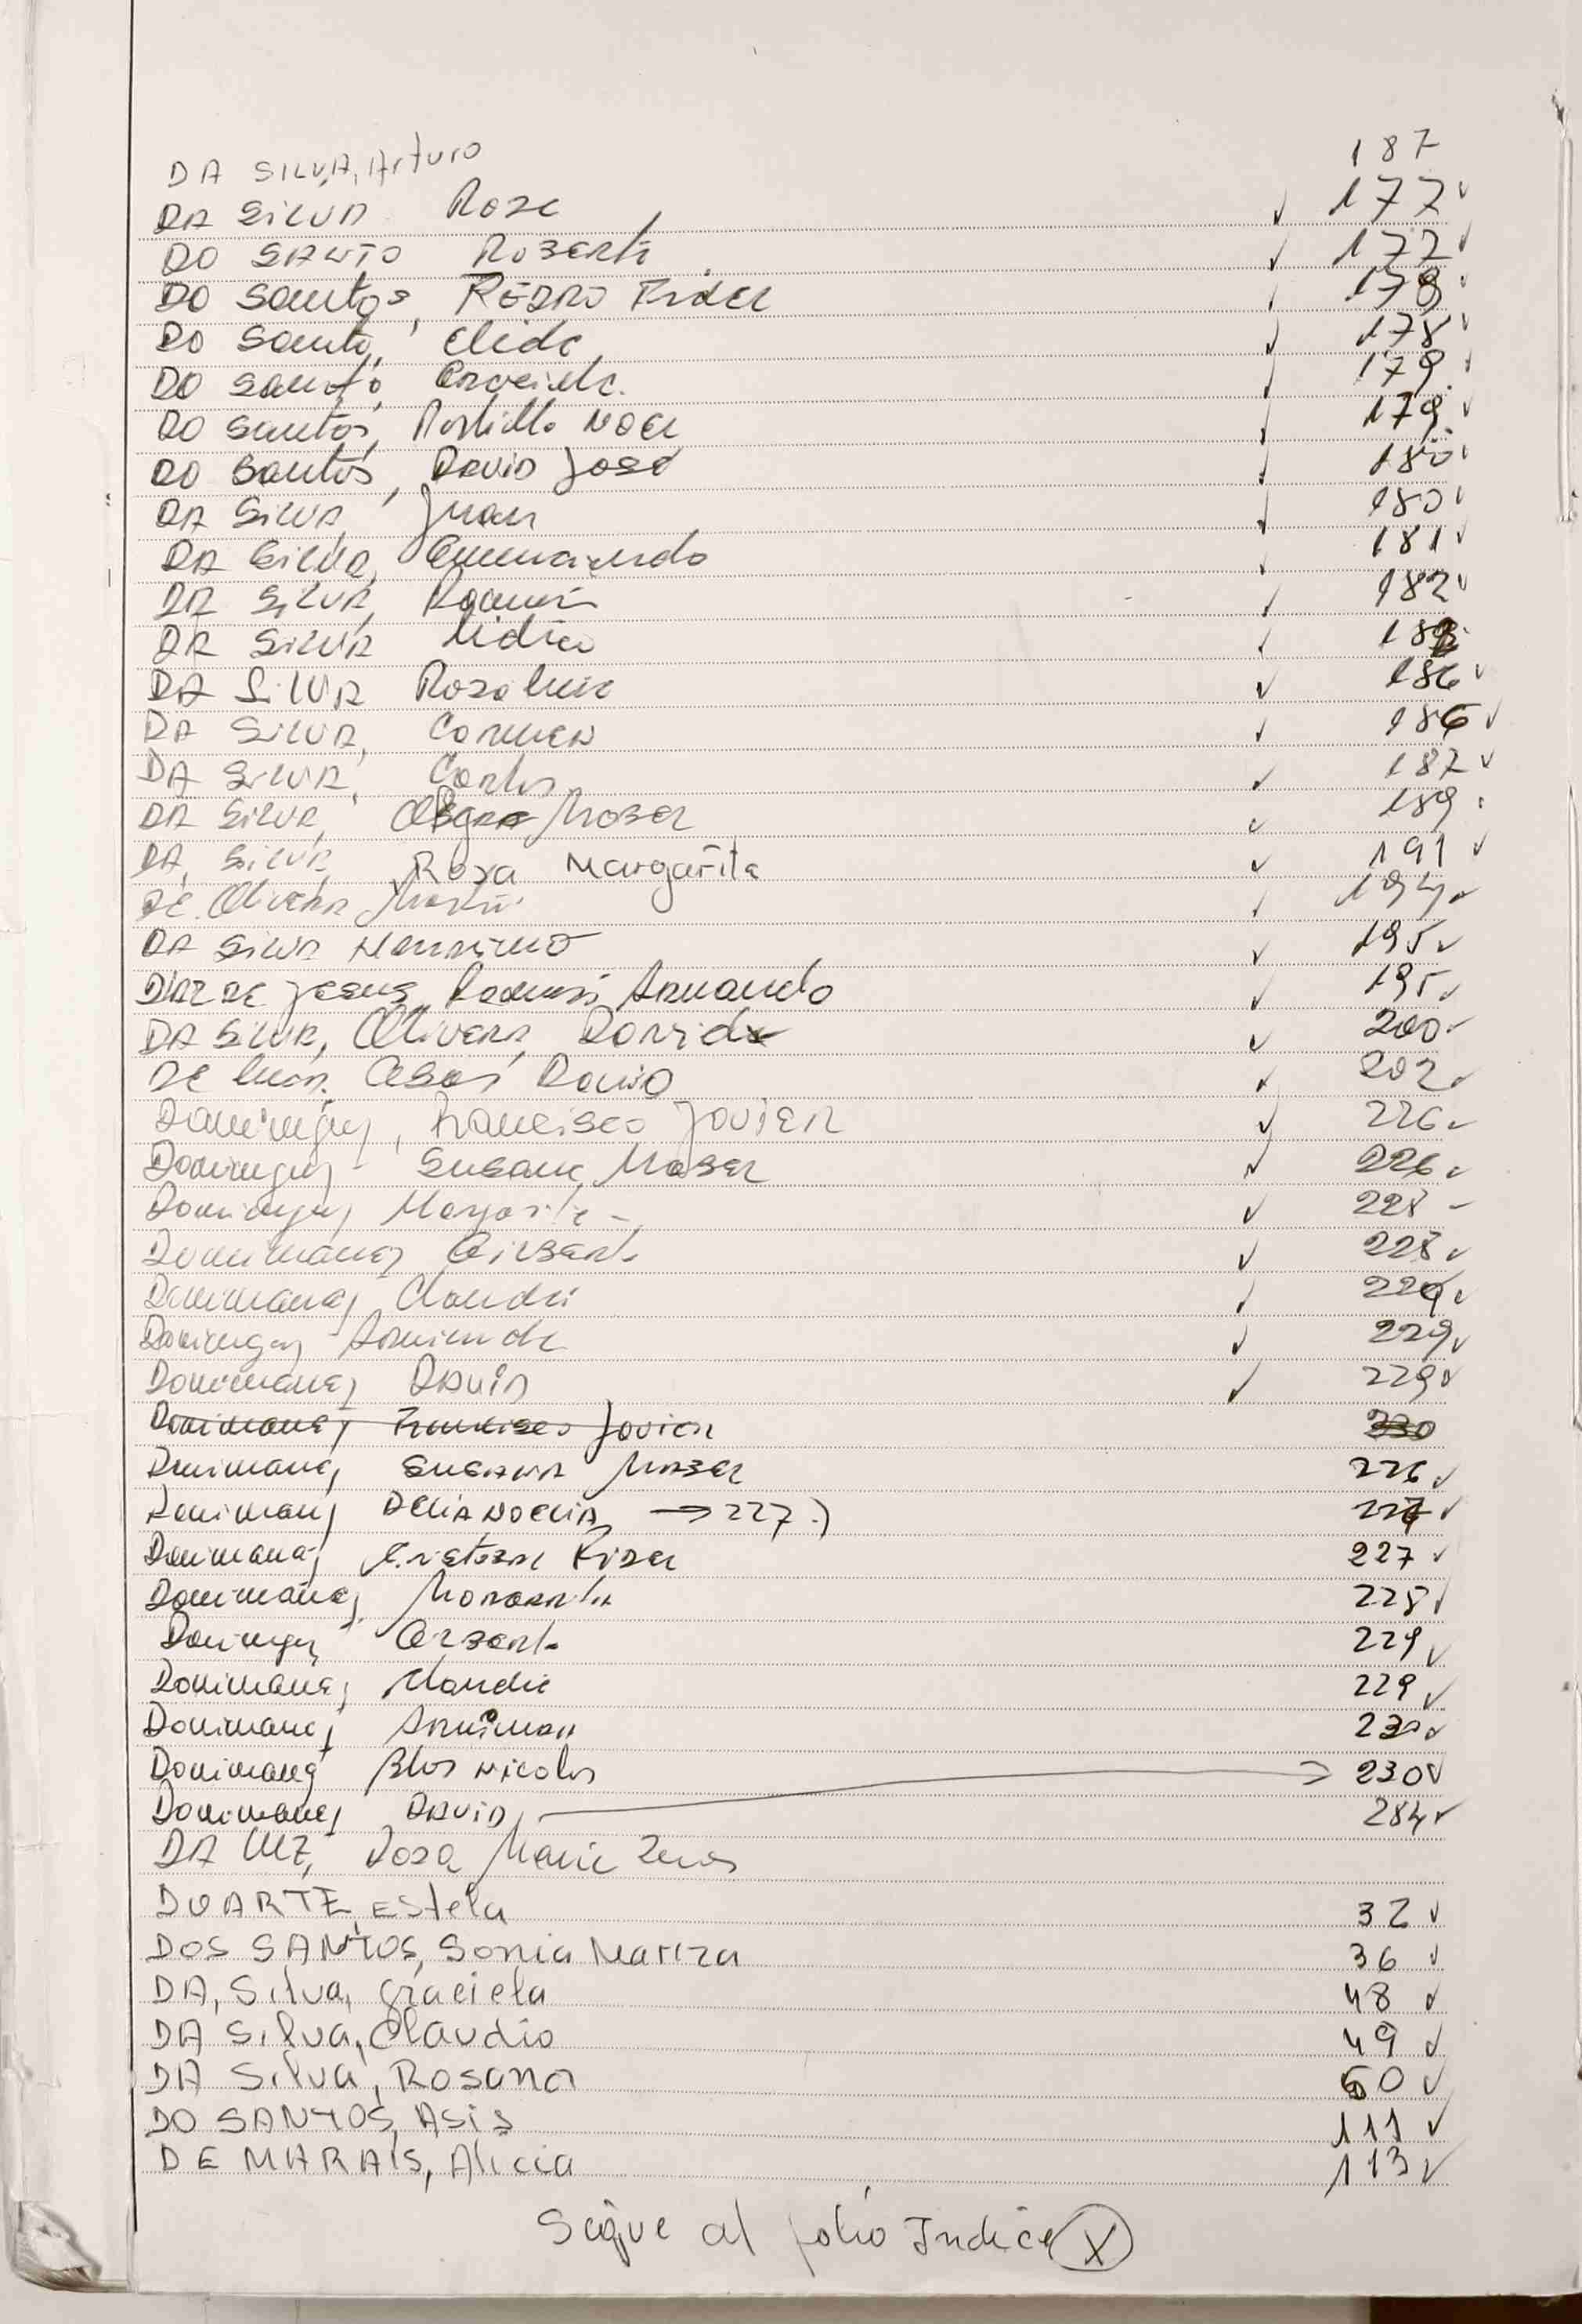 DA SILVA, Arturo 187
DA SILVA Rosa ✓ 177 ✓
DO SANTO Roberto ✓ 177 ✓
DO Santos, PEDRO FIDEL 178
DO Santo, Elida ✓ 178 ✓
DO Santo, Graciela. 179
DO Santos, NOEL 179 ✓
DO Santos, DAVID José 180
DA SILVA, Juan 180
DA SILVA, Gumersindo 181 ✓
DA SILVA, Ramón ✓ 182
DA SILVA Lidia ✓
DA SILVA Rosa ✓ 186 ✓
DA SILVA, CARMEN ✓ 186 ✓
DA SILVA, Carlos ✓ 187 ✓
DA SILVA, Mabel ✓ 189
DA, SILVA, Rosa Margarita ✓ 191 ✓
DE Olivera ✓ 194 ✓
DA SILVA ✓ 195 ✓
DIAZ DE Jesus, Ramón Armando ✓ 195 ✓
DA SILVA, Olivera, ✓ 200 ✓
DE David ✓ 202 ✓
Dominguez, Francisco JAVIER ✓ 226 ✓
Dominguez Susana Mabel ✓ 226 ✓
Dominguez Margarita ✓ 228 –
Dominguez Gilberto ✓ 228 ✓
Dominguez Claudia ✓ 229 ✓
Dominguez Arminda ✓ 229 ✓
Dominguez DAVID ✓ 229 ✓
Dominguez Francisco Javier 230
Dominguez SUSANA MABEL 226 ✓
Dominguez DELIA NOELIA → 227 .) 227 ✓
Dominguez FIDEL 227 ✓
Dominguez, Margarita 228 ✓
Dominguez Gilberto 229 ✓
Dominguez Claudia 229 ✓
Dominguez Arminda 230 ✓
Dominguez Blas Nicolas → 230 ✓
Dominguez DAVID 284 ✓
DA LUZ, Rosa María
DUARTE, Estela 32 ✓
DOS SANTOS, Sonia Mariza 36 ✓
DA, Silva, Graciela 48 ✓
DA Silva, Claudio 49 ✓
DA Silva, Rosana 60 ✓
DO SANTOS, ASIS 111 ✓
DE MARAIS, Alicia 113 ✓
Sigue al folio Indice X